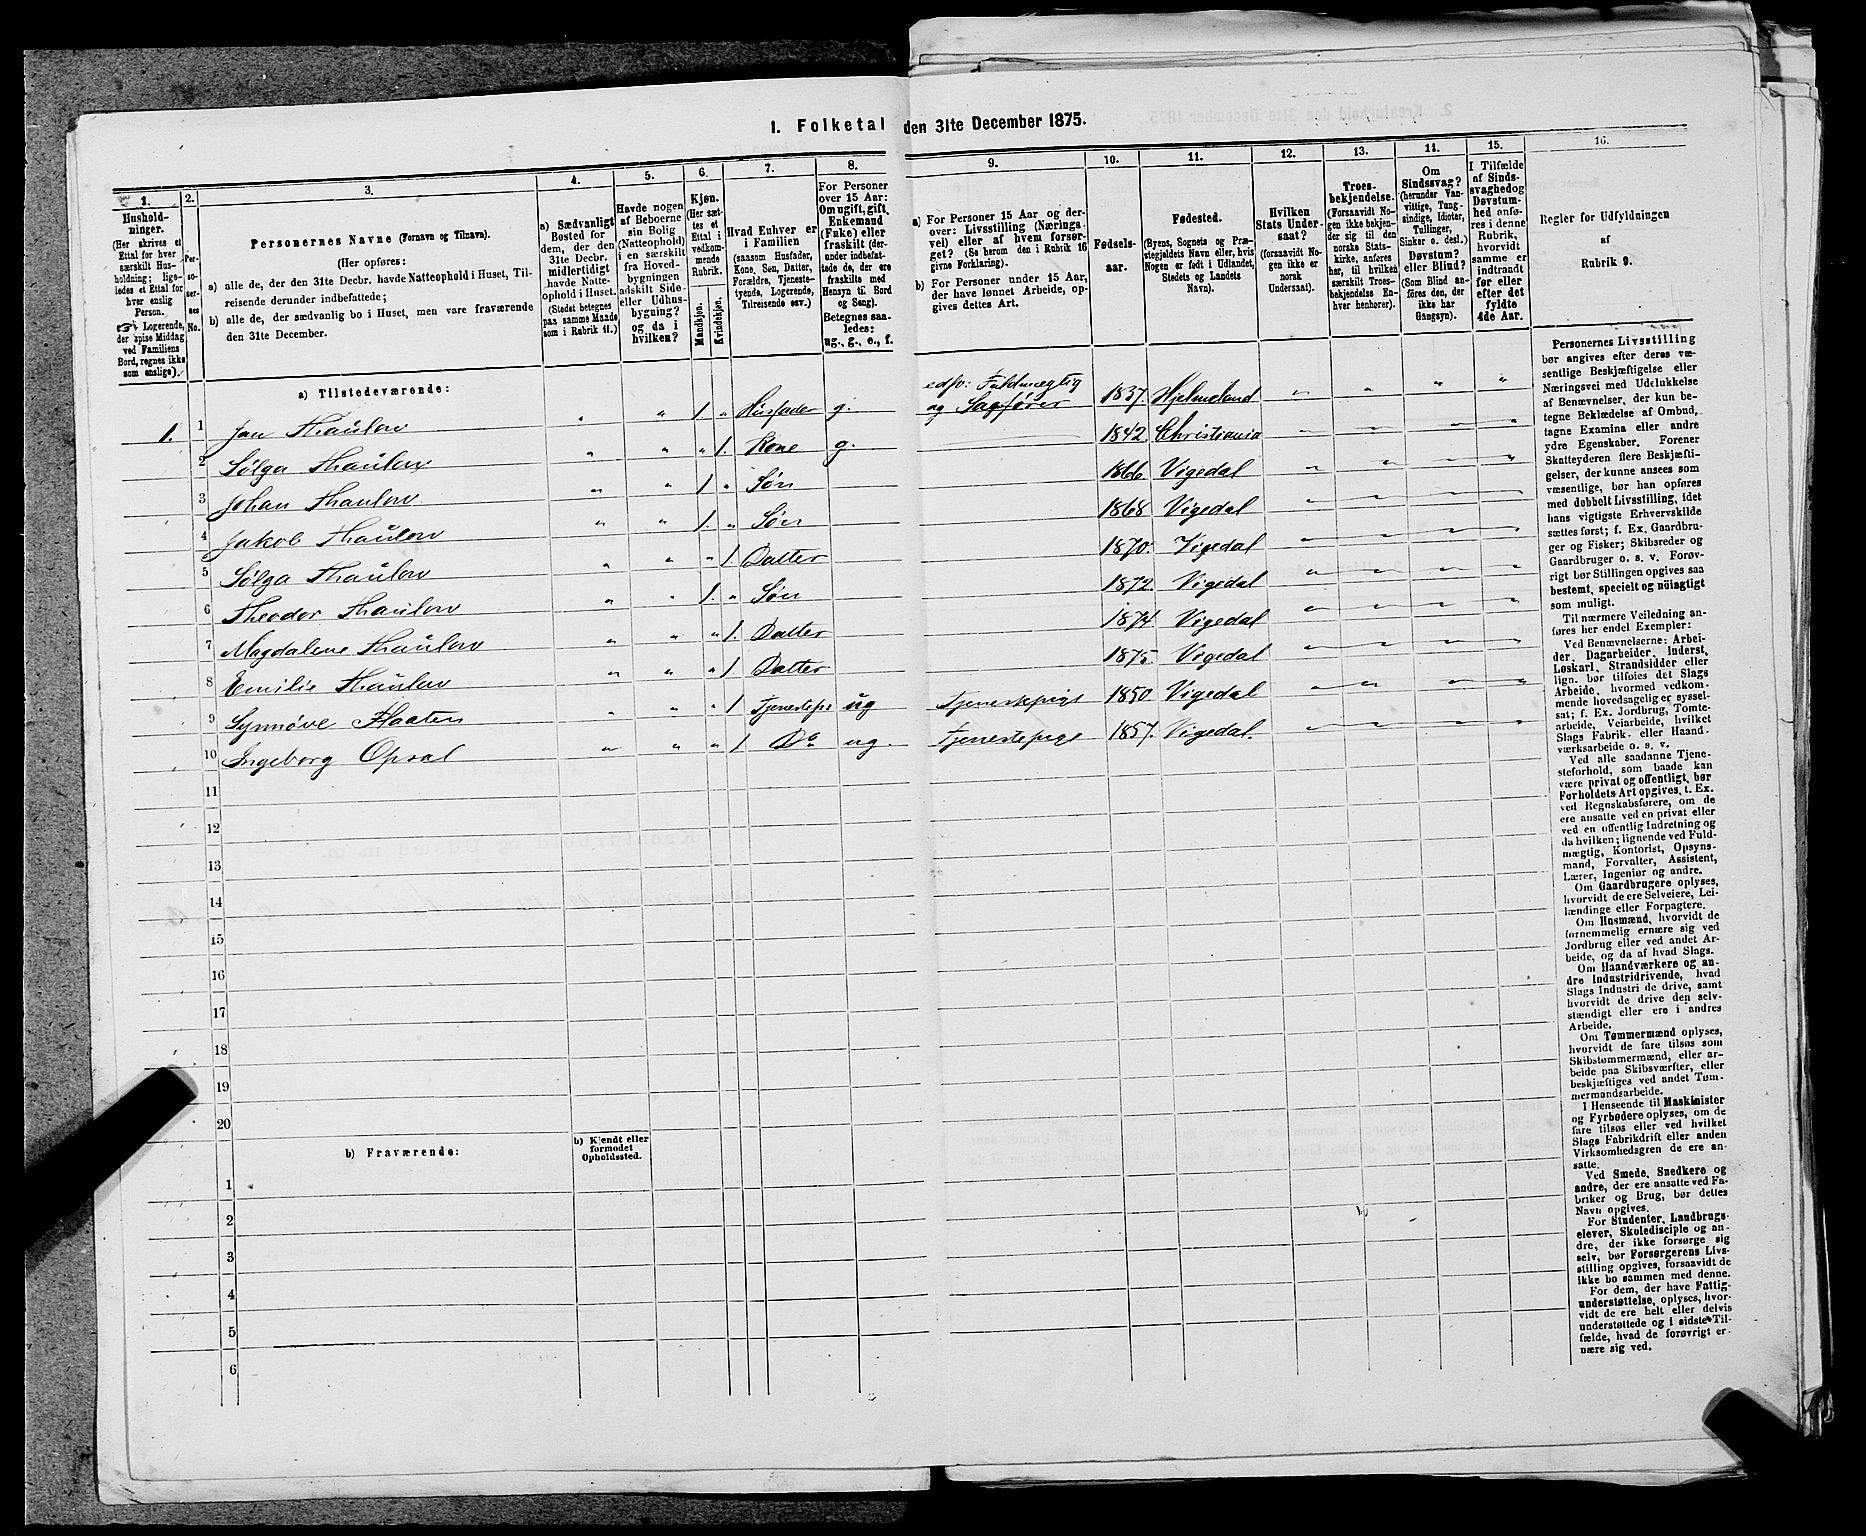 1. Folketal den 31te December 1875.
1. 2. 3. 4. 5. 6. 7. 8. 9. 10. 11. 12. 13. 14. 15. 16.
Hushold-
ninger.
(Her skrives et
Ettal for hver
særskilt Hus-
holdning; lige-
ledes et Ettal for
hver enslig
Person.
☞ Logerende,
der spise Middag
ved Familiens
Bord, regnes ikke
som enslige).
Per-
so-
ner-
nes
No.
Personernes Navne (Fornavn og Tilnavn).
(Her opføres:
a) alle de, der den 31te Decbr. havde Natteophold i Huset, Til-
reisende derunder indbefattede;
b) alle de, der sædvanlig bo i Huset, men vare fraværende
den 31te December.
a) Sædvanligt
Bosted for
dem, der den
31te Decbr.
midlertidigt
havde Natte-
ophold i Huset.
(Stedet betegnes
paa samme Maade
som i Rubrik 11.)
Havde nogen
af Beboerne
sin Bolig
(Natteophold)
i en særskilt
fra Hoved-
bygningen
adskilt Side-
eller Udhus-
bygning?
og da i
hvilken?
Kjøn.
(Her sæt-
tes et
Ettal i
vedkom-
mende
Rubrik.
Mandkjøn.
Kvindekjøn.
Hvad Enhver er
i Familien
(saasom Husfader,
Kone, Søn, Datter,
Forældre, Tjeneste-
tyende, Logerende,
Tilreisende osv.)
For Personer
over 15 Aar:
Om ugift, gift,
Enkemand
(Enke) eller
fraskilt (der-
under indbefat-
tede de, der ere
fraskilte med
Hensyn til Bord
og Seng).
Betegnes saa-
ledes:
ug., g., e., f.
a) For Personer 15 Aar og der-
over: Livsstilling (Nærings-
vei) eller af hvem forsør-
get? (Se herom den i Rubrik 16
givne Forklaring).
b) For Personer under 15 Aar,
der have lønnet Arbeide, op-
gives dettes Art.
Fødsels-
aar.
Fødested.
(Byens, Sognets og Præ-
stegjeldets Navn eller, hvis
Nogen er født i Udlandet,
Stedets og Landets
Navn).
Hvilken
Stats Under-
saat?
(forsaavidt No-
gen ikke er
norsk
Undersaat).
Troes-
bekjendelse.
(Forsaavidt No-
gen ikke bekjen-
der sig til den
norske Stats-
kirke, anføres
her, til hvilken
særskilt Troes-
bekjendelse En-
hver henhører).
Om
Sindssvag?
(herunder Van-
vittige, Tung-
sindige, Idioter,
Tullinger,
Sinker o. desl.)
Døvstum?
eller Blind?
(Som Blind an-
føres den, der
ikke har
Gangsyn).
I Tilfælde
af Sinds-
svaghed og
Døvstum-
hed anfø-
res i denne
Rubrik,
hvorvidt
samme er
indtraadt
før eller
efter det
fyldte
4de Aar.
Regler for Udfyldningen
af
Rubrik 9.
a) Tilstedeværende:
1. 1 Jan Thaulow " " 1. " Husfader g. edsv: Fuldmægtig
og Sagfører 1837. Hjelmeland " " " "
2 Sølga Thaulow " " " 1. Kone g. 1842. Christiania " " " "
3 Johan Thaulow " " 1 " Søn 1866. Vigedal " " " "
4 Jakob Thaulow " " 1. " Søn 1868 Vigedal " " " "
5 Sølga Thaulow " " " 1. Datter 1870. Vigedal " " " "
6 Theodor Thaulow " " 1. " Søn 1872. Vigedal " " " "
7 Magdalene Thaulow " " " 1. Datter 1874 Vigedal " " " "
8 Emilie Thaulow " " " 1 Datter 1875. Vigedal " " " "
9 Synnøve Flaaten " " " 1 Tjenestepi ug Tjenestepige 1850. Vigedal " " " "
10 Ingeborg Opsal " " " 1. Do ug. Tjenestepige 1857. Vigedal. " " " "
11
12
13
14
15
16
17
18
19
20
b) Fraværende:
b) Kjendt eller
formodet
Opholdssted.
1
2
3
4
5
6
Personernes Livsstilling
bør angives efter deres væ-
sentlige Beskjæftigelse eller
Næringsvei med Udelukkelse
af Benævnelser, der kun be-
tegne Beklædelse af Ombud,
tagne Examina eller andre
ydre Egenskaber. Forener
Skatteyderen flere Beskjæfti-
gelser, der kunne ansees som
væsentlige, bør han opføres
med dobbelt Livsstilling, idet
hans vigtigste Erhvervskilde
sættes først; f. Ex. Gaardbru-
ger og Fisker; Skibsreder og
Gaardbruger o. s. v. Forøv-
rigt bør Stillingen opgives saa
bestemt, specielt og nöiagtigt
som muligt.
Til nærmere Veiledning an-
føres her endel Exempler:
Ved Benævnelserne: Arbei-
der, Dagarbeider, Inderst,
Løskarl, Strandsidder eller
lign. bør tilføies det Slags
Arbeide, hvormed vedkom-
mende hovedsagelig er syssel-
sat; f. Ex. Jordbrug, Tomte-
arbeide, Veiarbeide, hvilket
Slags Fabrik- eller Haand-
værksarbeide o. s. v.
Ved alle saadanne Tjene-
steforhold, som baade kan
være privat og offentligt, bør
Forholdets Art opgives, t. Ex.
ved Regnskabsførere, om de
ere ansatte ved en privat eller
ved en offentlig Indretning og
da hvilken; lignende ved Fuld-
mægtig, Kontorist, Opsyns-
mand, Forvalter, Assistent,
Lærer, Ingeniør og andre.
Om Gaardbrugere oplyses,
hvorvidt de ere Selveiere, Lei-
lændinge eller Forpagtere.
Om Husmænd, hvorvidt de
fornemmelig ernære sig ved
Jordbrug eller ved andet Ar-
beide, og da af hvad Slags.
Om Haandværkere og an-
dre Industridrivende, hvad
Slags Industri de drive, samt
hvorvidt de drive den selv-
stændigt eller ere i andres
Arbeide.
Om Tømmermænd oplyses,
hvorvidt de fare tilsøs som
Skibstømmermænd, eller ar-
beide paa Skibsværfter, eller
beskjæftiges ved andet Tøm-
mermandsarbeide.
I Henseende til Maskinister
og Fyrbødere oplyses, om de
fare tilsøs eller ved hvilket
Slags Fabrikdrift eller anden
Virksomhedsgren de ere an-
satte.
Ved Smede, Snedkere og
andre, der ere ansatte ved Fa-
briker og Brug, bør dettes
Navn opgives.
For Studenter, Landbrugs-
elever, Skoledisciple og an-
dre, der ikke forsørge sig
selv, bør Forsørgerens Livs-
stilling opgives, forsaavidt de
ikke bo sammen med denne.
For dem, der have Fattig-
understøttelse, oplyses, hvor-
vidt de ere helt eller delvis
understøttede og i sidste Til-
fælde, hvad de forøvrigt er-
nære sig ved.